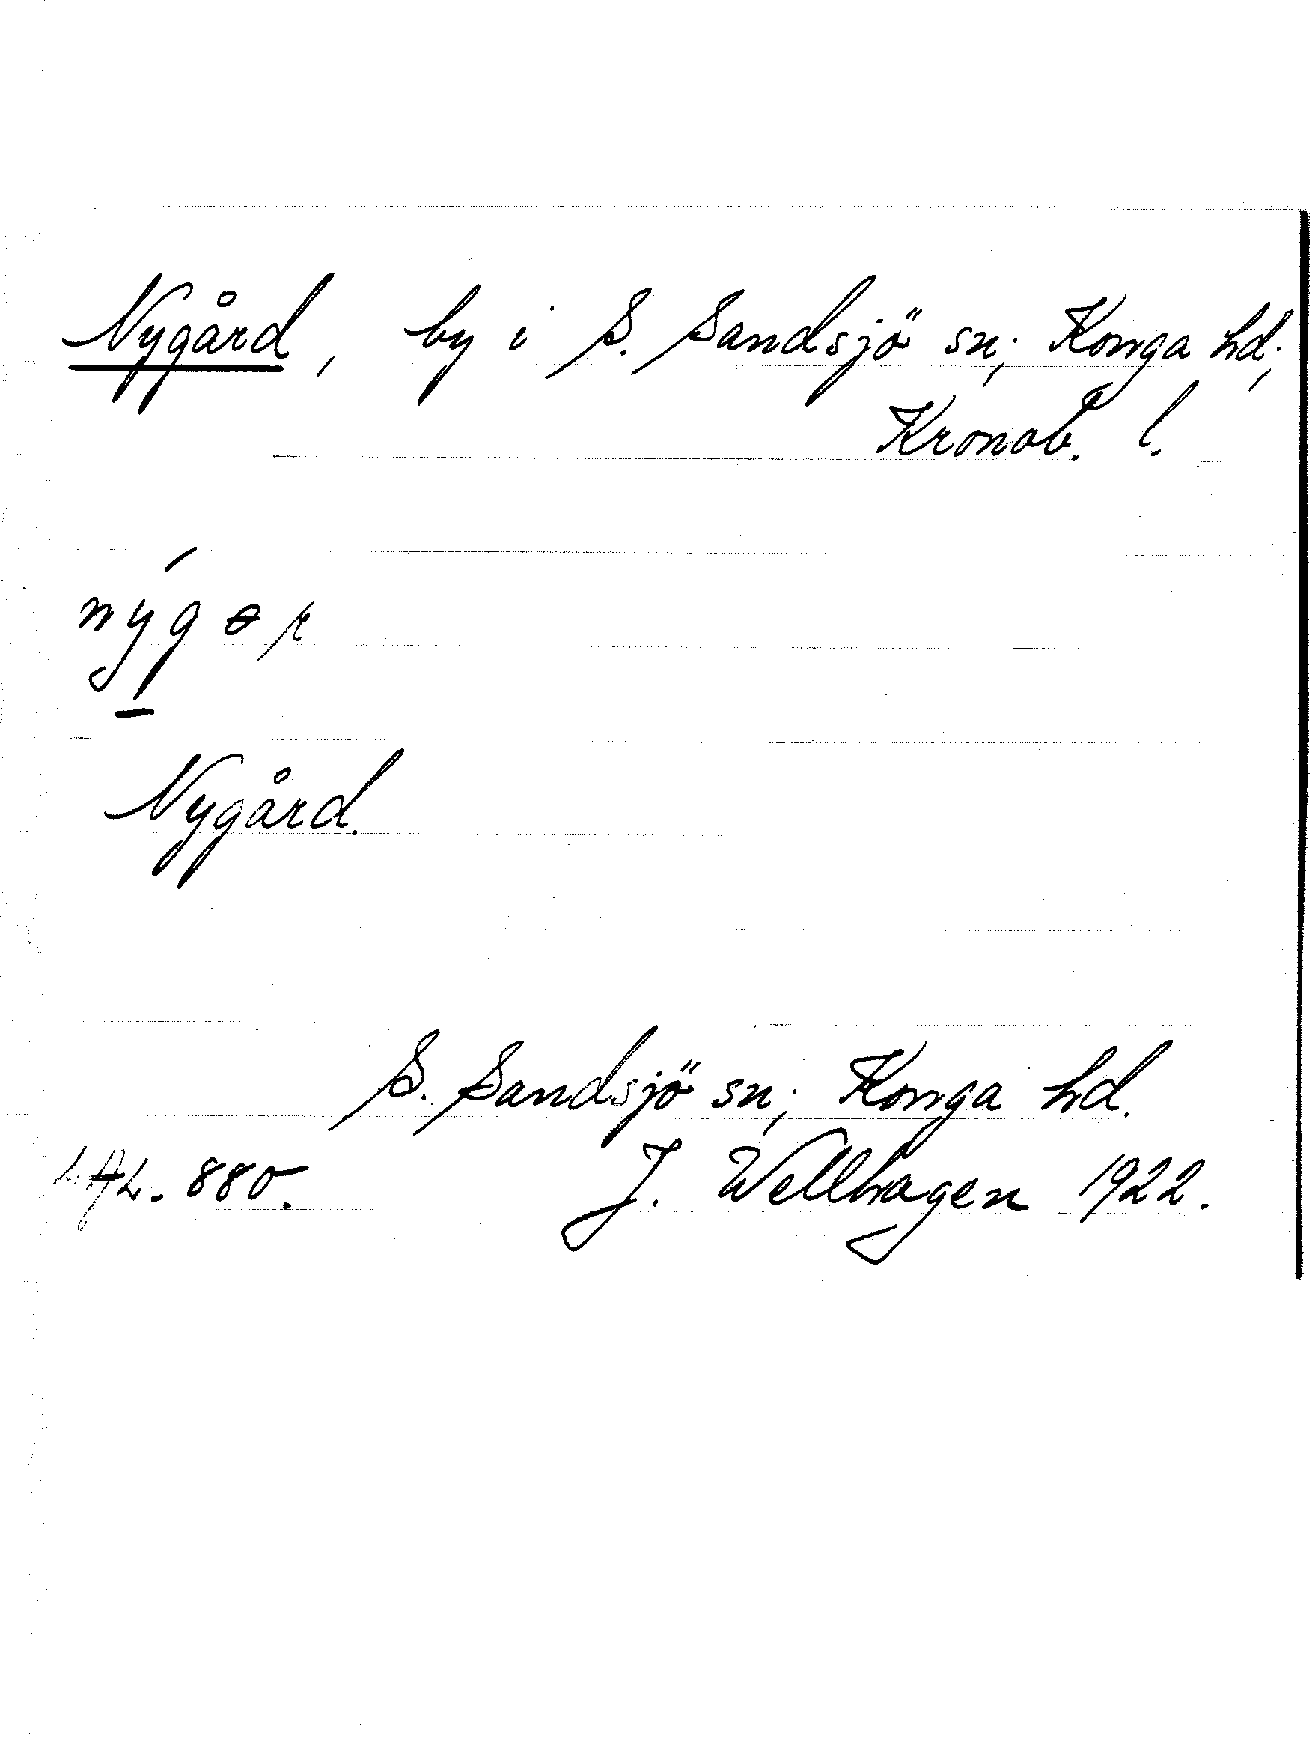 Nygård, by i S. Sandsjö sn; Konga hd;
Kronob. l.
nýgɵr
Nygård.
S. Sandsjö sn; Konga hd.
LAL. 880. J. Wellhagen 1922.